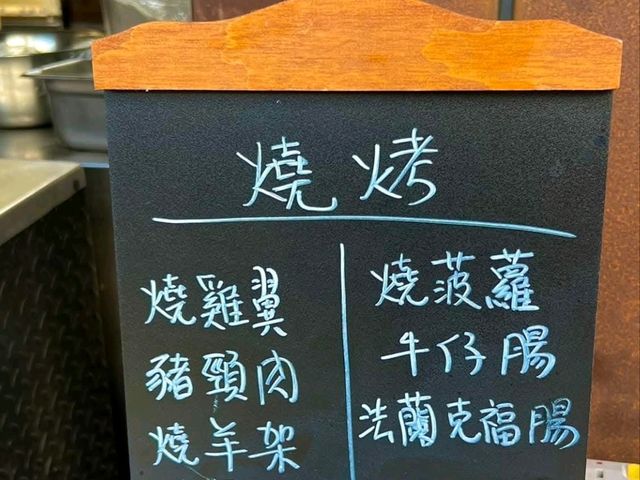 燒烤
燒雞翼
豬頸肉
燒羊架
燒菠蘿
牛仔腸
法蘭克福腸